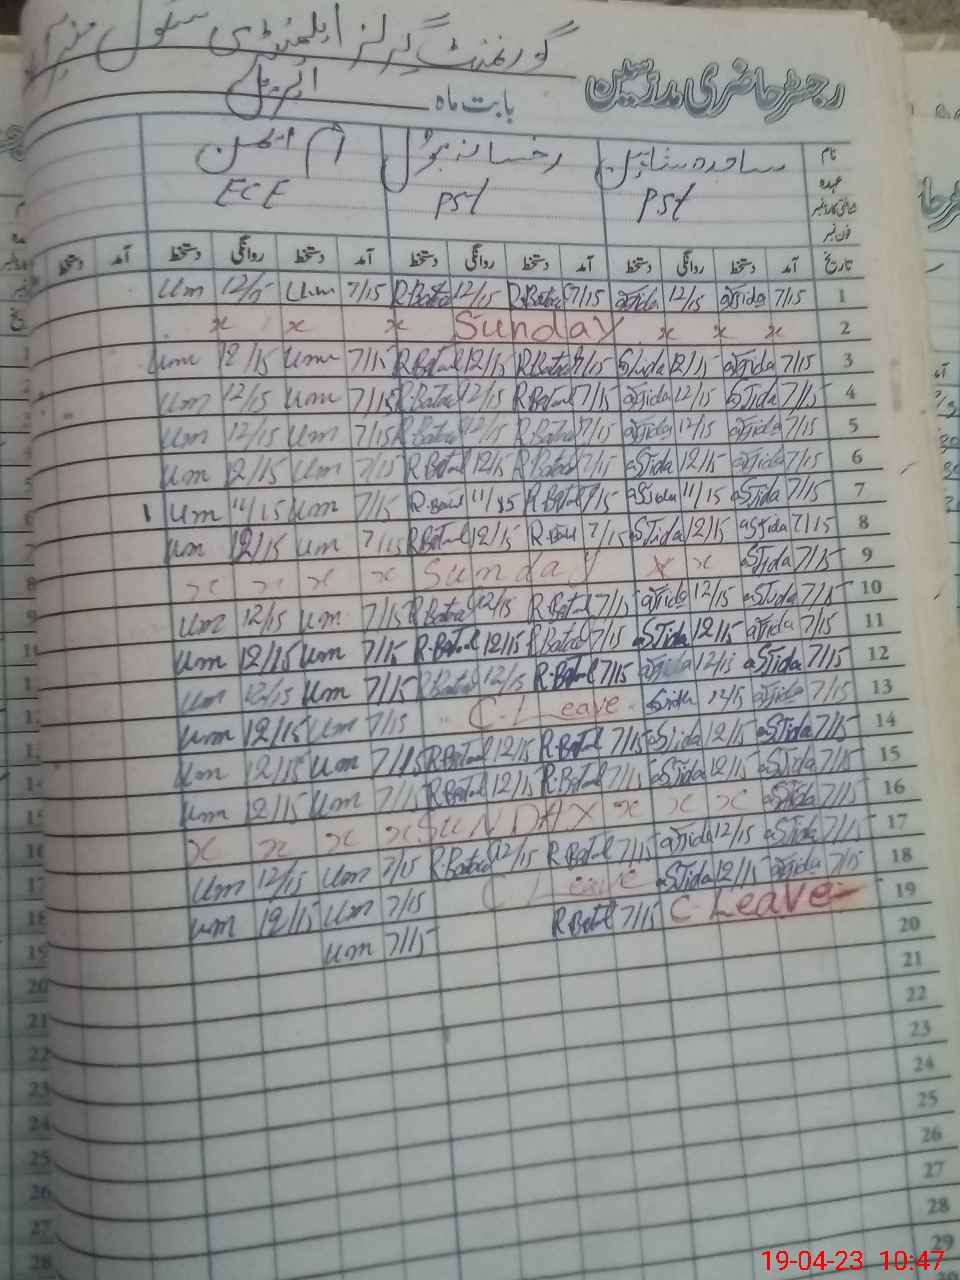 رجسٹر حاضری مدرسین گورنمنٹ گرلز ایلیمنٹری سکول
بابت ماہ اپریل
نام ساجدہ رخسانہ بتول ام ایمن
عہدہ PST PST ECE
شناختی کارڈ نمبر
فون نمبر
تاریخ آمد دستخط روانگی دستخط آمد دستخط روانگی دستخط آمد دستخط روانگی دستخط آمد دستخط
1 7/15 aSjida 12/15 aSjida 7/15 R.Batul 12/15 R.Batul 7/15 um 12/15 um
2 x x x Sunday x x x
3 7/15 aSjida 12/15 aSjida 7/15 R.Batul 12/15 R.Batul 7/15 um 12/15 um
4 7/15 aSjida 12/15 aSjida 7/15 R.Batul 12/15 R.Batul 7/15 um 12/15 um
5 7/15 aSjida 12/15 aSjida 7/15 R.Batul 12/15 R.Batul 7/15 um 12/15 um
6 7/15 aSjida 12/15 aSjida 7/15 R.Batul 12/15 R.Batul 7/15 um 12/15 um
7 7/15 aSjida 11/15 aSjida 7/15 R.Batul 11/15 R.Batul 7/15 um 11/15 um
8 7/15 aSjida 12/15 aSjida 7/15 R.Batul 12/15 R.Batul 7/15 um 12/15 um
9 7/15 aSjida x x Sunday x x x x
10 7/15 aSjida 12/15 aSjida 7/15 R.Batul 12/15 R.Batul 7/15 um 12/15 um
11 7/15 aSjida 12/15 aSjida 7/15 R.Batul 12/15 R.Batul 7/15 um 12/15 um
12 7/15 aSjida 12/15 aSjida 7/15 R.Batul 12/15 R.Batul 7/15 um 12/15 um
13 7/15 aSjida 12/15 aSjida C-Leave 7/15 um 12/15 um
14 7/15 aSjida 12/15 aSjida 7/15 R.Batul 12/15 R.Batul 7/15 um 12/15 um
15 7/15 aSjida 12/15 aSjida 7/15 R.Batul 12/15 R.Batul 7/15 um 12/15 um
16 7/15 aSjida x x x SUNDAY x x x x
17 7/15 aSjida 12/15 aSjida 7/15 R.Batul 12/15 R.Batul 7/15 um 12/15 um
18 7/15 aSjida 12/15 aSjida C Leave 7/15 um 12/15 um
19 C-Leave 7/15 R.Batul 7/15 um
20
21
22
23
24
25
26
27
28
29
19-04-23 10:47